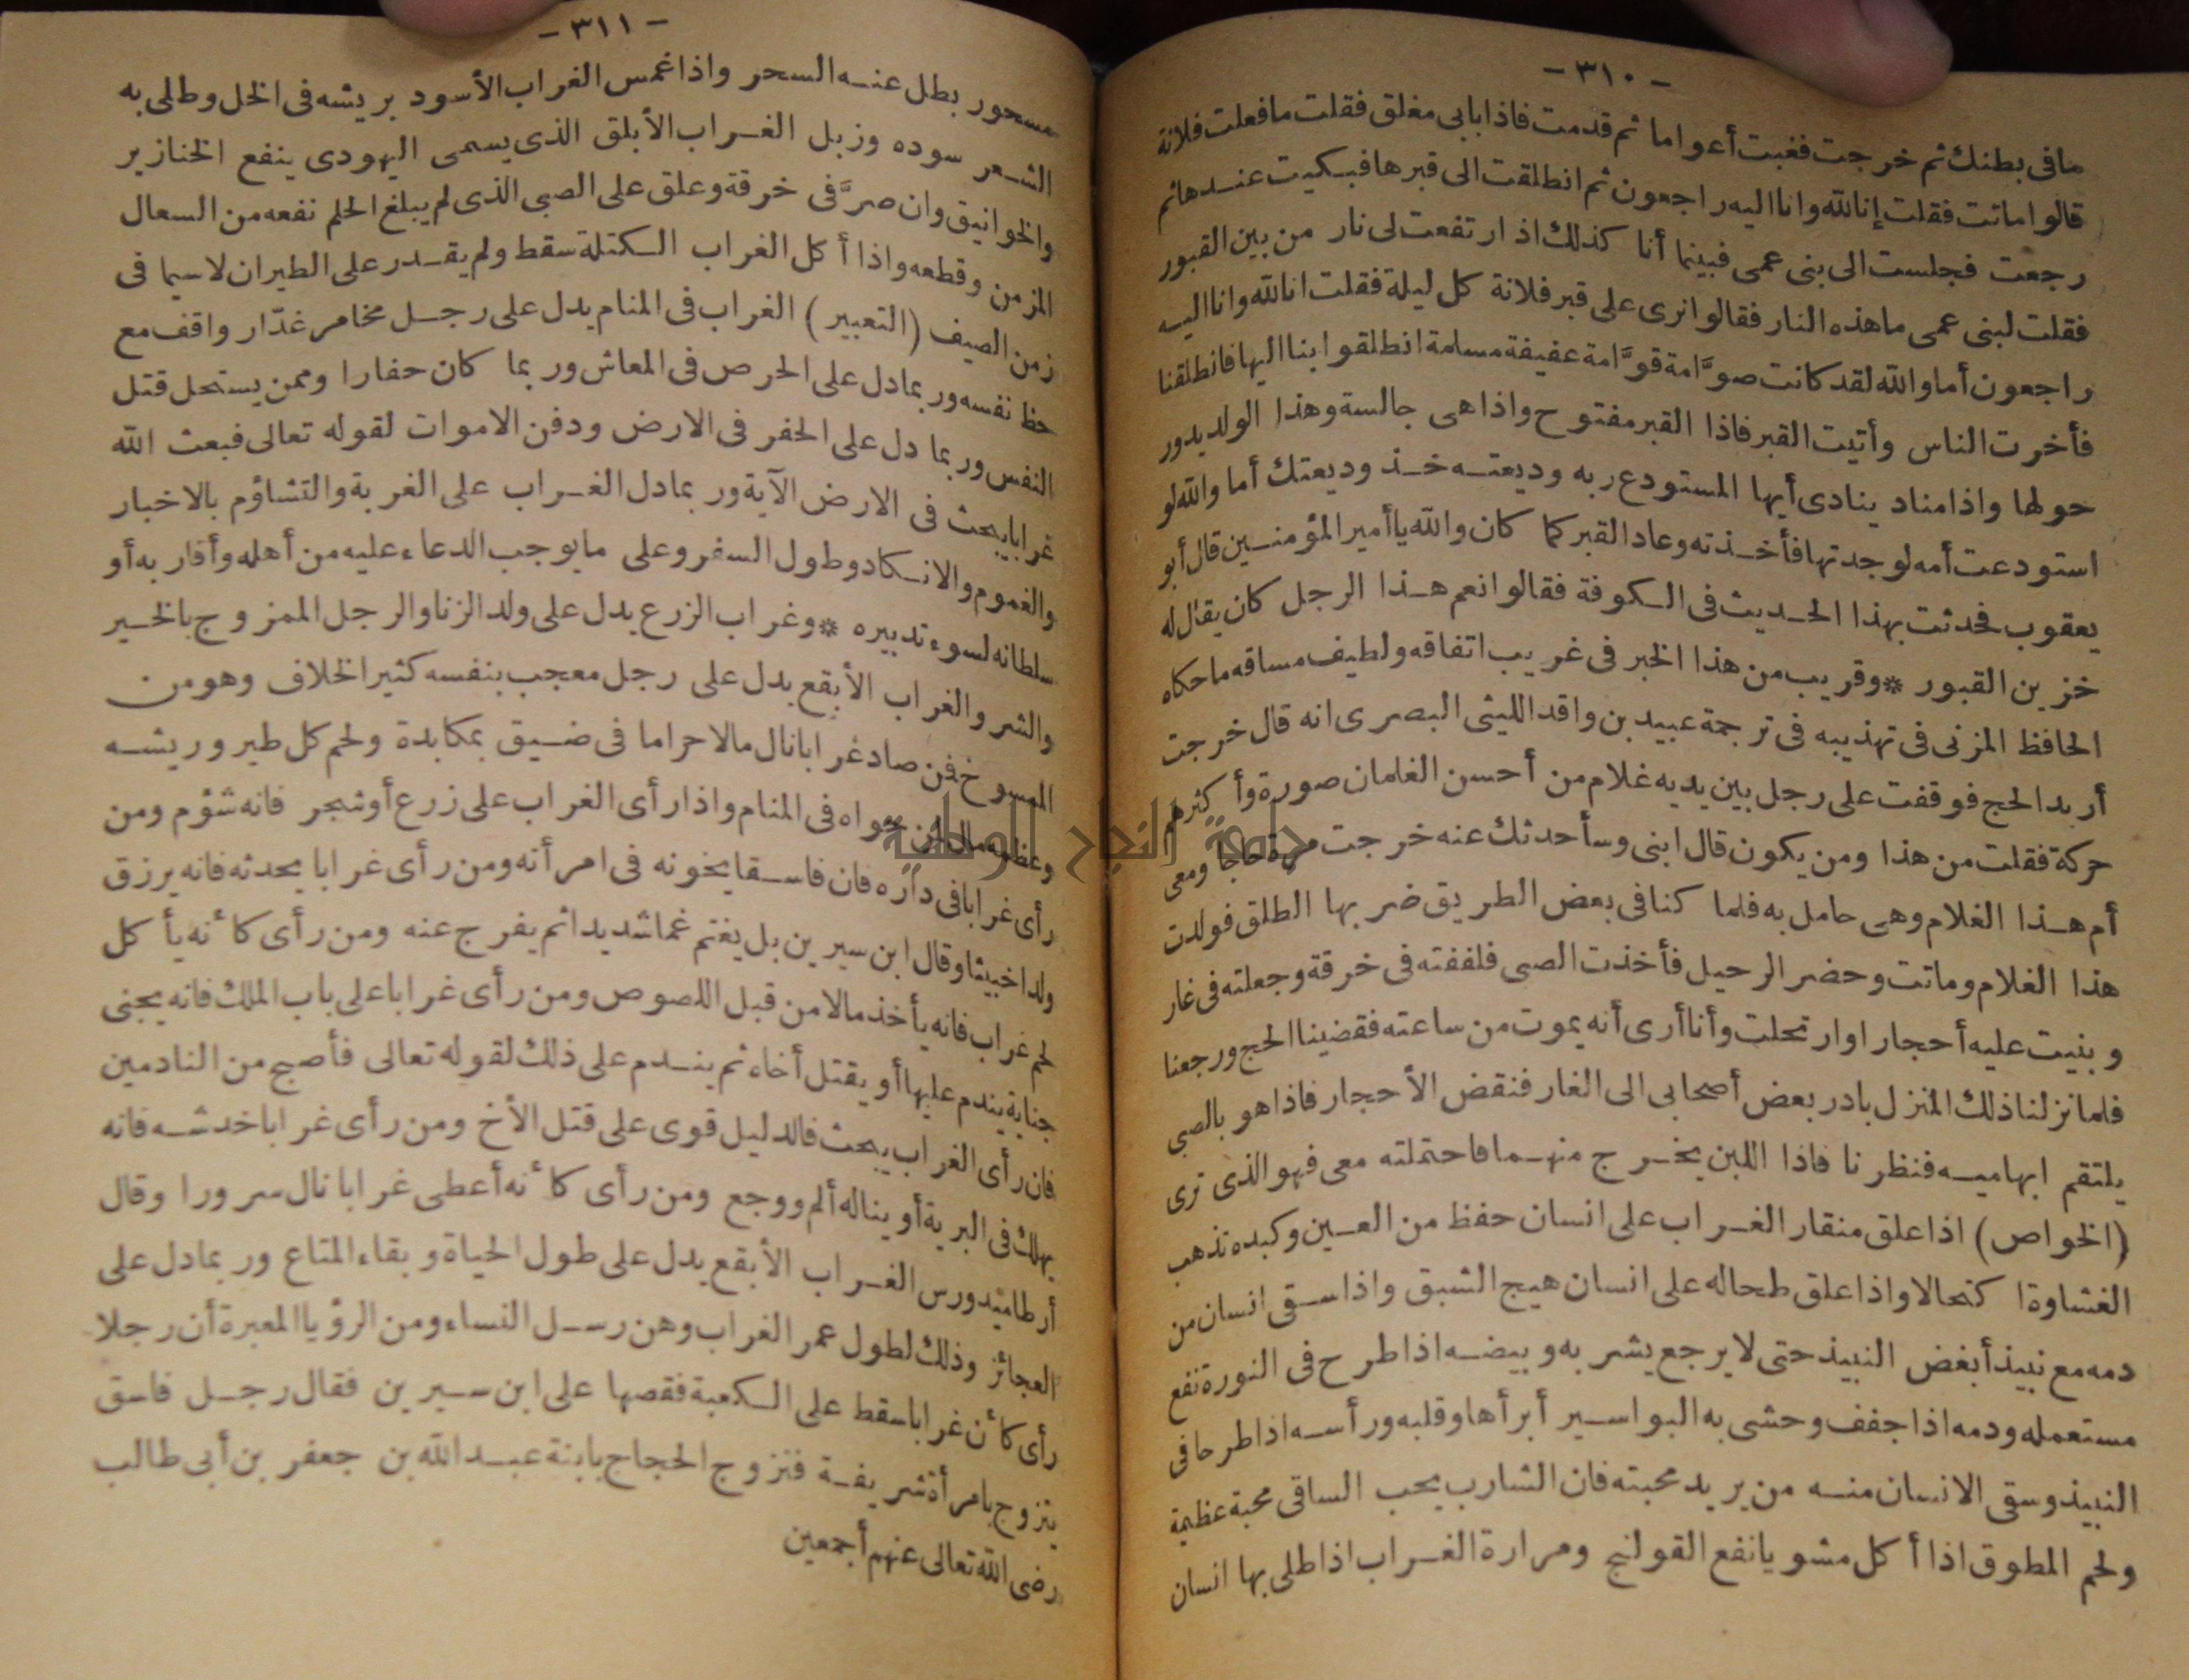 - ٣١٠ -
مافى بطنك ثم خرجت فغبت أعواما ثم قدمت فاذا بابى مغلق فقلت مافعلت فلانة
قالوا ماتت فقلت إنا لله وانا اليه راجعون ثم انطلقت الى قبرها فبكيت عندها ثم
رجعت فجلست الى بنى عمى فبينما أنا كذلك اذ ارتفعت لى نار من بين القبور
فقلت لبنى عمى ماهذه النار فقالوا نرى على قبر فلانة كل ليلة فقلت انا لله وانا اليه
راجعون أما والله لقد كانت صوَّامة قوَّامة عفيفة مسلمة انطلقوا بنا اليها فانطلقنا
فأخرت الناس وأتيت القبر فاذا القبر مفتوح واذا هى جالسة وهذا الولد يدور
حولها واذا مناد ينادى أيها المستودع ربه وديعته خذ وديعتك أما والله لو
استودعت أمه لوجدتها فأخذته وعاد القبر كما كان والله يا أمير المؤمنين قال أبو
يعقوب فحدثت بهذا الحديث فى الكوفة فقالوا نعم هذا الرجل كان يقال له
خزين القبور * وقريب من هذا الخبر فى غريب اتفاقه ولطيف مساقه ماحكاه
الحافظ المزنى فى تهذيبه فى ترجمة عبيد بن واقد الليثى البصرى انه قال خرجت
أريد الحج فوقفت على رجل بين يديه غلام من أحسن الغلمان صورة وأكثرهم
حركة فقلت من هذا ومن يكون قال ابنى وسأحدثك عنه خرجت مرة حاجا ومعى
أم هذا الغلام وهى حامل به فلما كنا فى بعض الطريق ضربها الطلق فولدت
هذا الغلام وماتت وحضر الرحيل فأخذت الصبى فلففته فى خرقة وجعلته فى غار
وبنيت عليه أحجارا وارتحلت وأنا أرى أنه يموت من ساعته فقضينا الحج ورجعنا
فلما نزلنا ذلك المنزل بادر بعض أصحابى الى الغار فنقض الأحجار فاذا هو بالصبى
يلتقم ابهاميه فنظرنا فاذا اللبن يخرج منهما فاحتملته معى فهو الذى ترى
(الخواص) اذا علق منقار الغراب على انسان حفظ من العين وكبده تذهب
الغشاوة اكتحالا واذا علق طحاله على انسان هيج الشبق واذا سقى انسان من
دمه مع نبيذ أبغض النبيذ حتى لا يرجع يشربه وبيضه اذا طرح فى النورة نفع
مستعمله ودمه اذا جفف وحشى به البواسير أبرأها وقلبه ورأسه اذا طرحا فى
النبيذ وسقى الانسان منه من يريد محبته فان الشارب يحب الساقى محبة عظيمة
ولحم المطوق اذا أكل مشويا نفع القولنج ومرارة الغراب اذا طلى بها انسان
- ٣١١ -
مسحور بطل عنه السحر واذا غمس الغراب الأسود بريشه فى الخل وطلى به
الشعر سوده وزبل الغراب الأبلق الذى يسمى اليهودى ينفع الخنازير
والخوانيق وان صرَّ فى خرقة وعلق على الصبى الذى لم يبلغ الحلم نفعه من السعال
المزمن وقطعه واذا أكل الغراب الكتلة سقط ولم يقدر على الطيران لاسيما فى
زمن الصيف (التعبير) الغراب فى المنام يدل على رجل مخامر غدّار واقف مع
حظ نفسه وربما دل على الحرص فى المعاش وربما كان حفارا وممن يستحل قتل
النفس وربما دل على الحفر فى الارض ودفن الاموات لقوله تعالى فبعث الله
غرابا يبحث فى الارض الآية وربما دل الغراب على الغربة والتشاؤم بالاخبار
والغموم والانكاد وطول السفر وعلى مايوجب الدعاء عليه من أهله وأقاربه أو
سلطانه لسوء تدبيره * وغراب الزرع يدل على ولد الزنا والرجل الممزوج بالخير
والشر والغراب الأبقع يدل على رجل معجب بنفسه كثير الخلاف وهو من
المسوخ فمن صاد غرابا نال مالا حراما فى ضيق بمكابدة ولحم كل طير وريشه
وعظمه مال لمن حواه فى المنام واذا رأى الغراب على زرع أو شجر فانه شؤم ومن
رأى غرابا فى داره فان فاسقا يخونه فى امرأته ومن رأى غرابا يحدثه فانه يرزق
ولدا خبيثا وقال ابن سيرين بل يغتم غما شديدا ثم يفرج عنه ومن رأى كأنه يأكل
لحم غراب فانه يأخذ مالا من قبل اللصوص ومن رأى غرابا على باب الملك فانه يجنى
جناية يندم عليها أو يقتل أخاه ثم يندم على ذلك لقوله تعالى فأصبح من النادمين
فان رأى الغراب يبحث فالدليل قوى على قتل الأخ ومن رأى غرابا خدشه فانه
يهلك فى البرية أو يناله ألم ووجع ومن رأى كأنه أعطى غرابا نال سرورا وقال
أرطاميدورس الغراب الأبقع يدل على طول الحياة وبقاء المتاع وربما دل على
العجائز وذلك لطول عمر الغراب وهن رسل النساء ومن الرؤيا المعبرة أن رجلا
رأى كأن غرابا سقط على الكعبة فقصها على ابن سيرين فقال رجل فاسق
يتزوج بامرأة شريفة فتزوج الحجاج بابنة عبد الله بن جعفر بن أبى طالب
رضى الله تعالى عنهم أجمعين
جامعة النجاح الوطنية